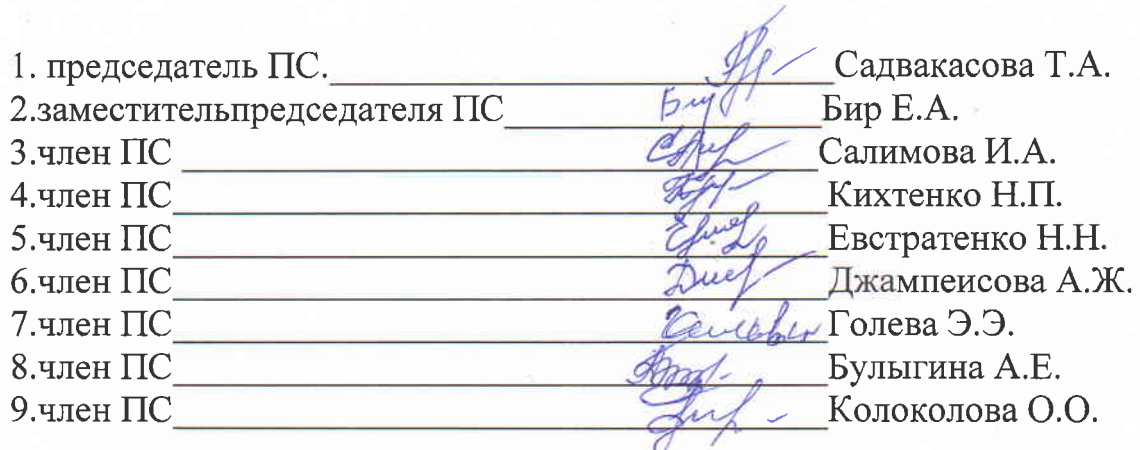 1. председатель ПС.____________________Садвакасова Т.А.
2.заместительпредседателя ПС____________________Бир Е.А.
3.член ПС ____________________Салимова И.А.
4.член ПС____________________Кихтенко Н.П.
5.член ПС____________________Евстратенко Н.Н.
6.член ПС____________________Джампеисова А.Ж.
7.член ПС____________________Голева Э.Э.
8.член ПС____________________Булыгина А.Е.
9.член ПС____________________Колоколова О.О.